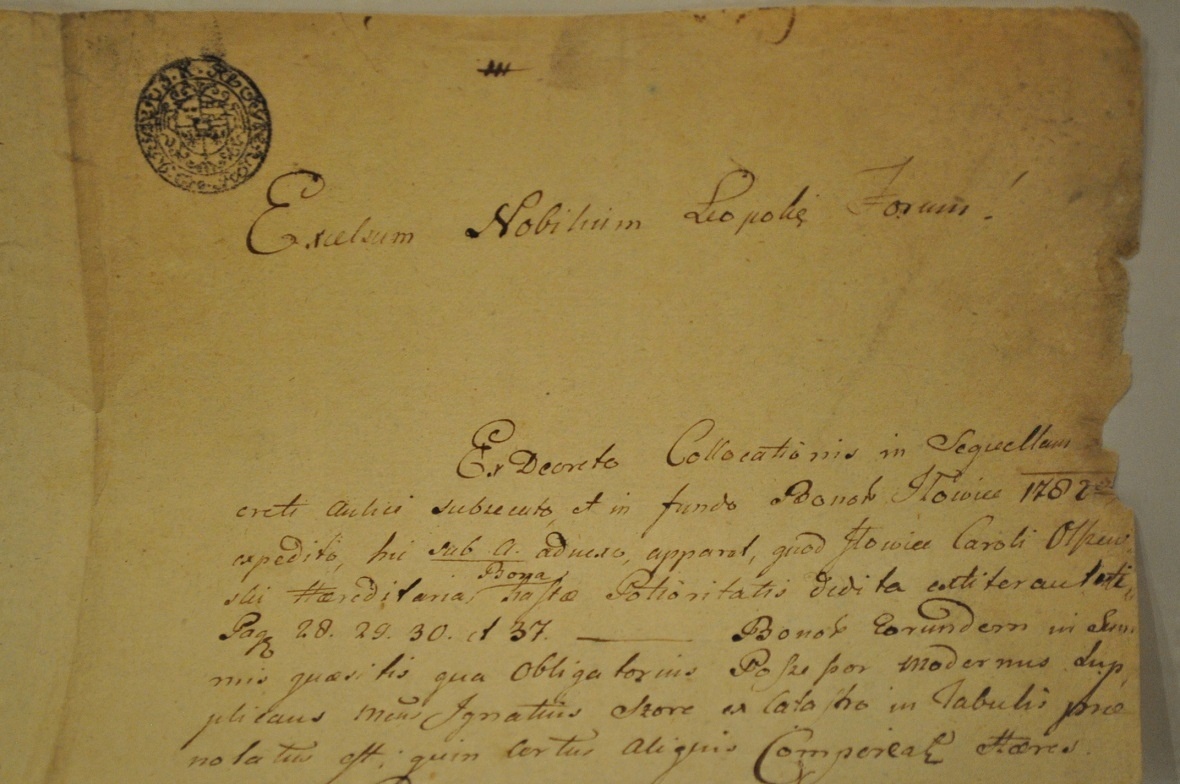 Excelsum Nobilium Leopolię Forum!
Ex Decreto Collocationis in Sequellam
creti Aulici subsecuto, et in fundo Bonor Iłowice 1782
expedito, hic sub A. adnexo, apparet, quod Iłowice Caroli
ski Hæreditaria Bona hastæ Potioritatis dedita extiterant
Pag 28. 29. 30. et 37. Bonor Eorundem in
mis quæsitis qua Obligatorius Possessor Modernus Sup,
plicans meus Ignatius Skore ex Catastro in Tabulis præ
nolatus est; quin Certus aliquis Compereat Hæres.